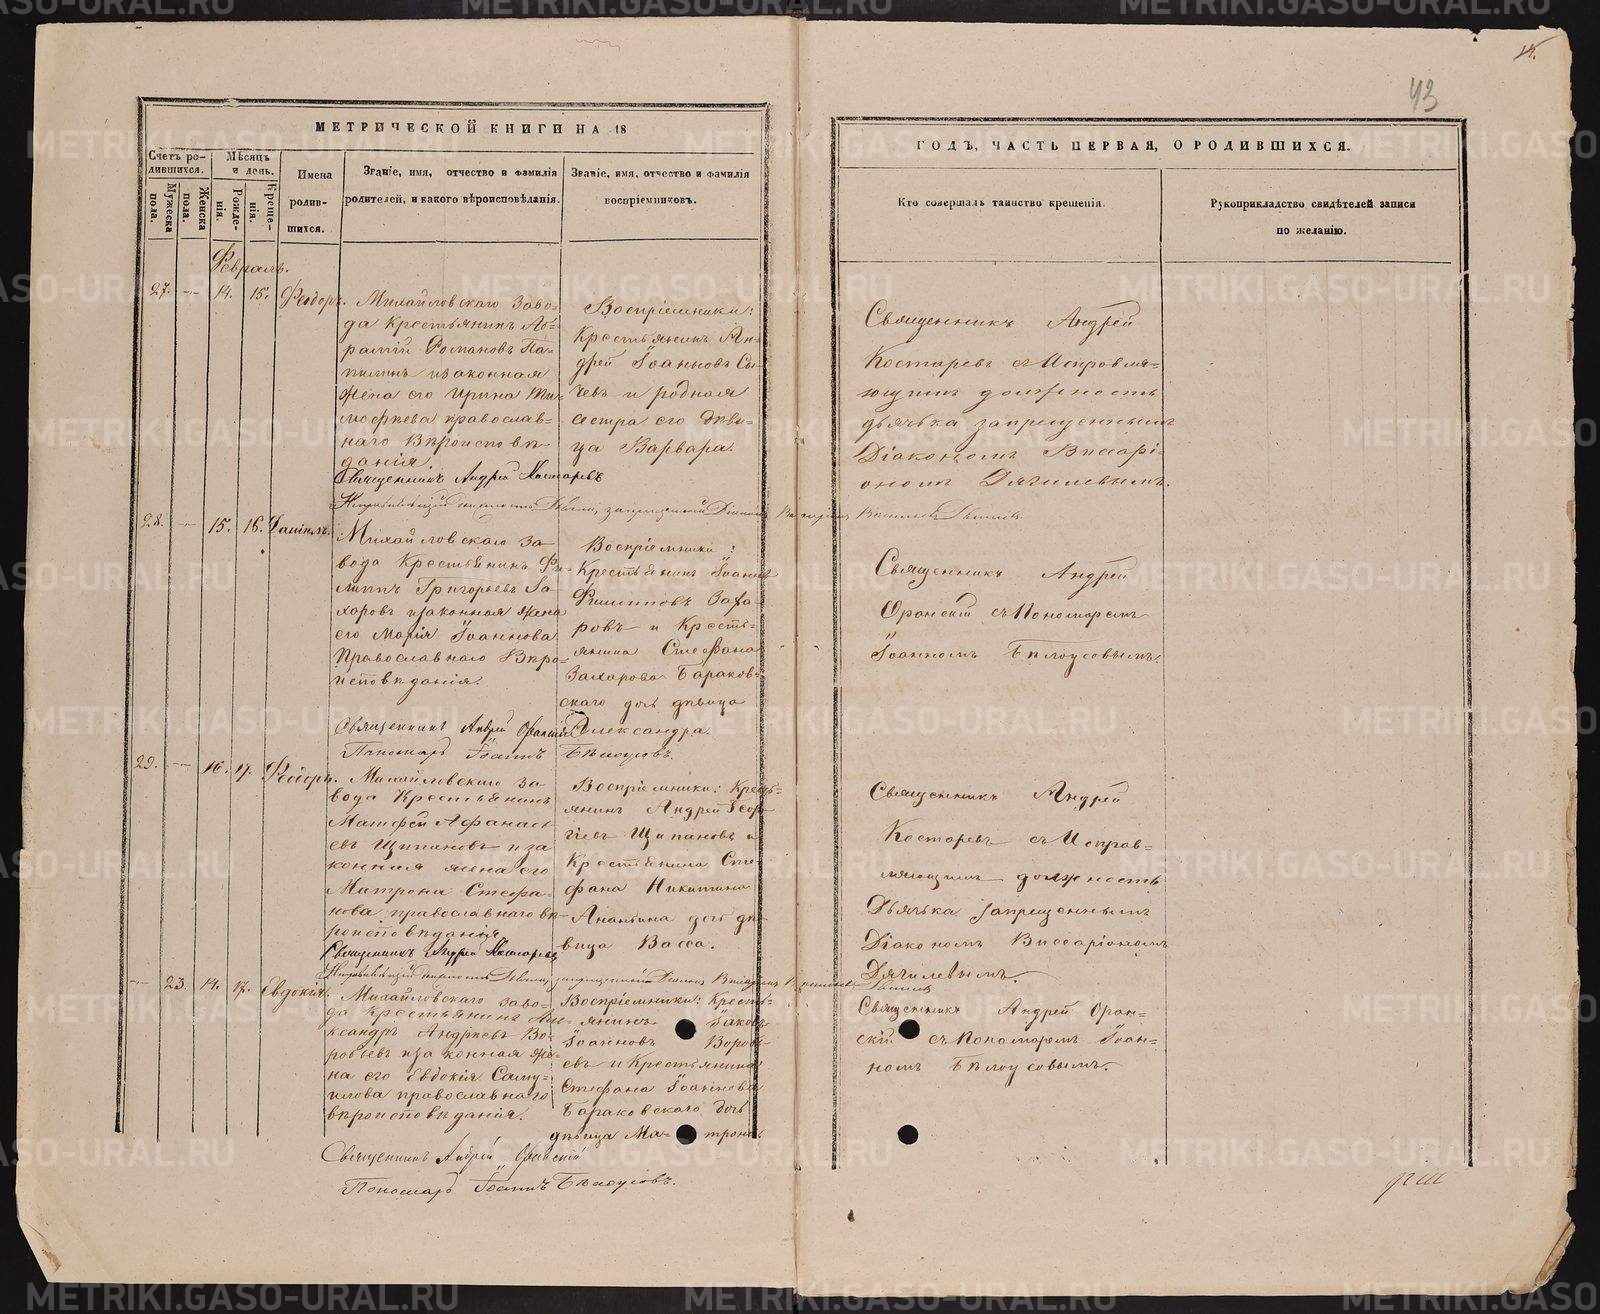 43
МЕТРИЧЕСКОЙ КНИГИ НА 18
ГОДЪ, ЧАСТЬ ПЕРВАЯ, О РОДИВШИХСЯ.
Счетъ ро-
дившихся.
Мужеска
пола.
Женска
пола.
Мѣсяцъ
и день.
Рожде-
нія.
Креще-
нія.
Имена
родив-
шихся.
Званіе, имя, отчество и фамилія
родителей, и какого вѣроисповѣданія.
Званіе, имя, отчество и фамилія
воспріемниковъ.
Кто совершалъ таинство крещенія.
Рукоприкладство свидѣтелей записи
по желанію.
Февраль.
27. — 14. 15. Феодоръ.
Михайловскаго Заво-
да Крестьянинъ Ав-
рамій Романовъ Па-
пилинъ и законная
жена его Ирина Ти-
мофѣева православ-
наго Вѣроисповѣ-
данія.
Воспріемники:
Крестьянинъ Ан-
дрей Іоанновъ Сы-
чевъ и родная
сестра его дѣви-
ца Варвара.
Священникъ Андрей
Костаревъ съ Исправля-
ющимъ должность
дьячка запрещеннымъ
Діакономъ Виссарі-
ономъ Дягилевымъ.
Священникъ Андрей Костаревъ
28. — 15. 16. Даніилъ.
Михайловскаго За-
вода Крестьянинъ Фи-
липпъ Григорьевъ За-
харовъ и законная жена
его Марія Іоаннова
Православнаго Вѣро-
исповѣданія.
Воспріемники:
Крестьянинъ Іоаннъ
Филипповъ Заха-
ровъ и Кресть-
янина Стефана
Захарова Бараков-
скаго дочь дѣвица
Александра.
Священникъ Андрей
Оранскій съ Пономаремъ
Іоанномъ Бѣлоусовымъ.
Священникъ Андрей Оранскій
Пономарь Іоаннъ Бѣлоусовъ.
29. — 16. 17. Феодоръ.
Михайловскаго За-
вода Крестьянинъ
Матфей Афанась-
евъ Щипановъ и за-
конная жена его
Матрона Стефа-
нова православнаго вѣ-
роисповѣданія.
Воспріемники: Кресть-
янинъ Андрей Геор-
гіевъ Щипановъ и
Крестьянина Сте-
фана Никитина
Ананьина дочь дѣ-
вица Васса.
Священникъ Андрей
Костаревъ съ Исправ-
ляющимъ должность
Дьячка запрещеннымъ
Діакономъ Виссаріономъ
Дягилевымъ.
Священникъ Андрей Костаревъ
— 23. 14. 17. Евдокія.
Михайловскаго заво-
да Крестьянинъ Але-
ксандръ Андреевъ Во-
робьевъ и законная же-
на его Евдокія Саму-
илова православнаго
вѣроисповѣданія.
Воспріемники: Кресть-
янинъ Іаковъ
Іоанновъ Воробь-
евъ и Крестьянина
Стефана Іоаннова
Бараковскаго дочь
дѣвица Матрона.
Священникъ Андрей Оран-
скій съ Пономаремъ Іоан-
номъ Бѣлоусовымъ.
Священникъ Андрей Оранскій
Пономарь Іоаннъ Бѣлоусовъ.
METRIKI.GASO-URAL.RU